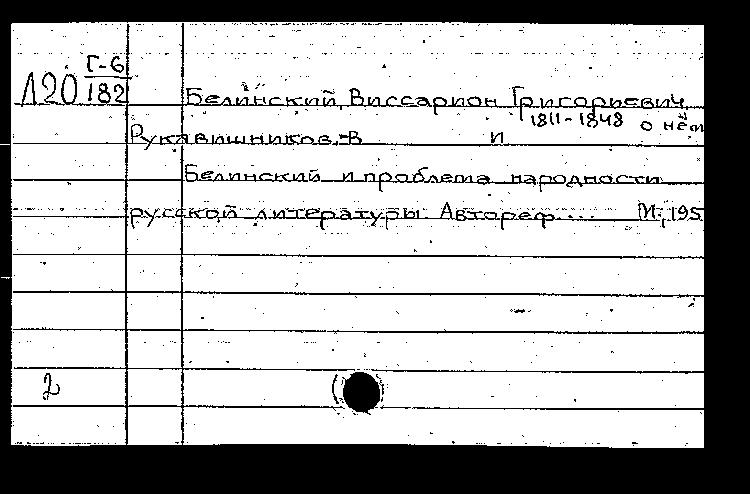 Г-6
Л20 182
Белинский, Виссарион Григориевич
1811-1848 о нём
Рукавишников, В И
Белинский и проблема народности
русской литературы. Автореф.... М., 195
2